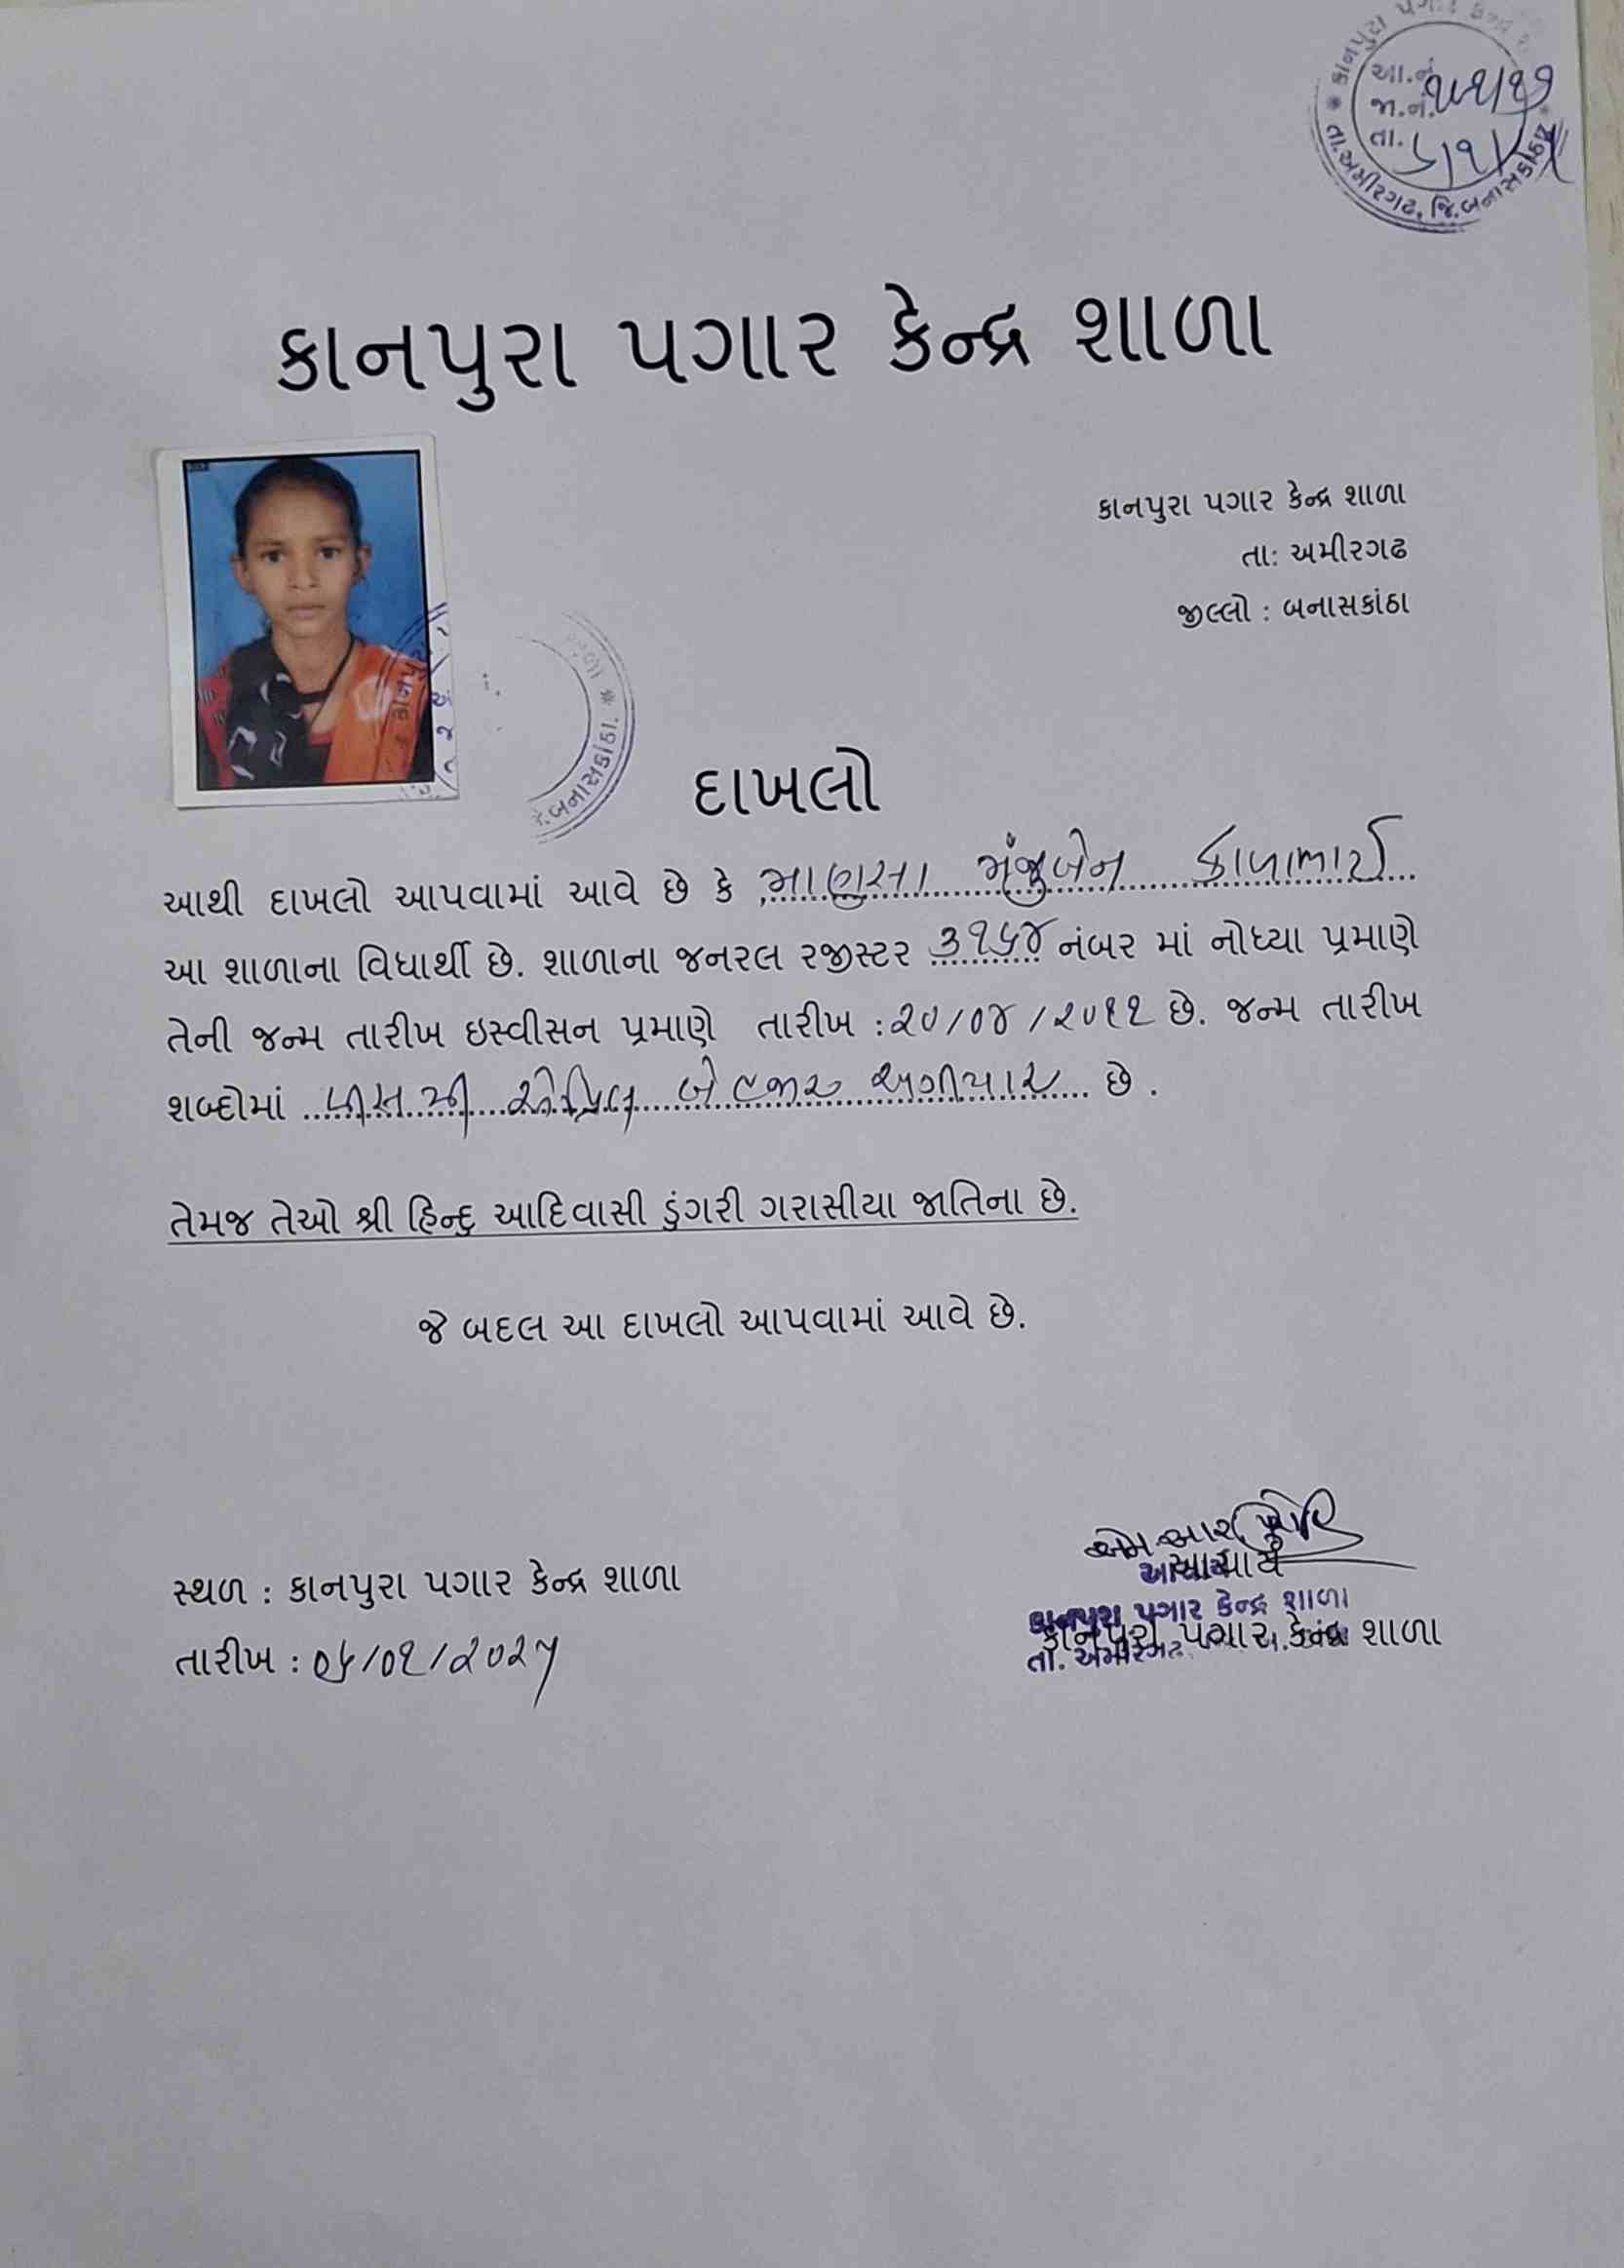 કાનપુરા પગાર કેન્દ્ર
આ.નં.
જા.નં.
તા.
તા.અમીરગઢ, જિ.બનાસકાંઠા
કાનપુરા પગાર કેન્દ્ર શાળા
કાનપુરા પગાર કેન્દ્ર શાળા
તા: અમીરગઢ
જીલ્લો : બનાસકાંઠા
કાનપુરા
બનાસકાંઠા.
દાખલો
આથી દાખલો આપવામાં આવે છે કે માણસા મંજુબેન કાળાભાઈ
આ શાળાના વિધાર્થી છે. શાળાના જનરલ રજીસ્ટર ૩૧૬૪ નંબર માં નોધ્યા પ્રમાણે
તેની જન્મ તારીખ ઇસ્વીસન પ્રમાણે તારીખ : ૨૦/૦૪/૨૦૧૧ છે. જન્મ તારીખ
શબ્દોમાં વીસમી એપ્રિલ બે હજાર અગીયાર છે .
તેમજ તેઓ શ્રી હિન્દુ આદિવાસી ડુંગરી ગરાસીયા જાતિના છે.
જે બદલ આ દાખલો આપવામાં આવે છે.
એમ આર
આચાર્ય
સ્થળ : કાનપુરા પગાર કેન્દ્ર શાળા
કાનપુરા પગાર કેન્દ્ર શાળા
કાનપુરા પગાર કેન્દ્ર શાળા
તા. અમીરગઢ
તારીખ : ૦૬/૦૧/૨૦૨૫